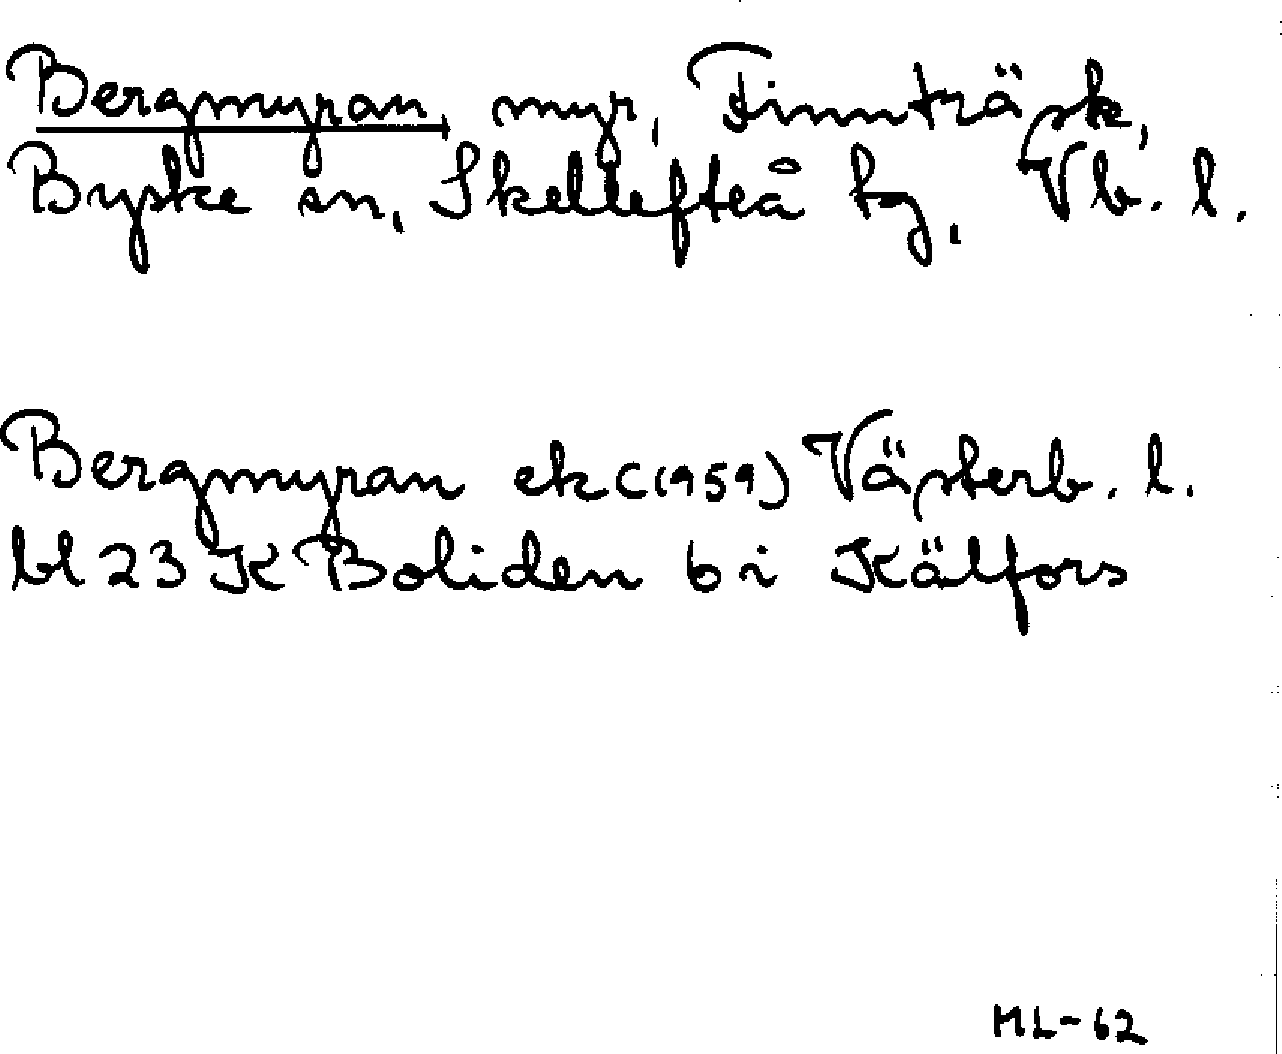 Bergmyran, myr, Finnträsk,
Byske sn, Skellefteå tg, Vb. l.
Bergmyran ekC(1959) Västerb. l.
bl 23 K Boliden 6 i Kälfors
ML-62